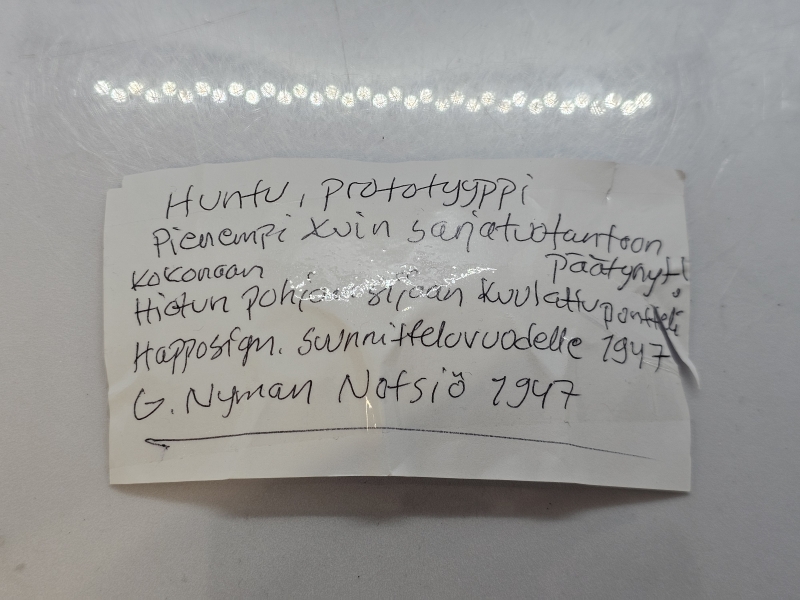 Huntu, prototyyppi
Pienempi kuin sarjatuotantoon
kokonaan päätynyt
Hiotun pohjan sijaan kuulattu pontteli
Happosign. suunnitteluvuodelle 1947
G. Nyman Notsiö 1947